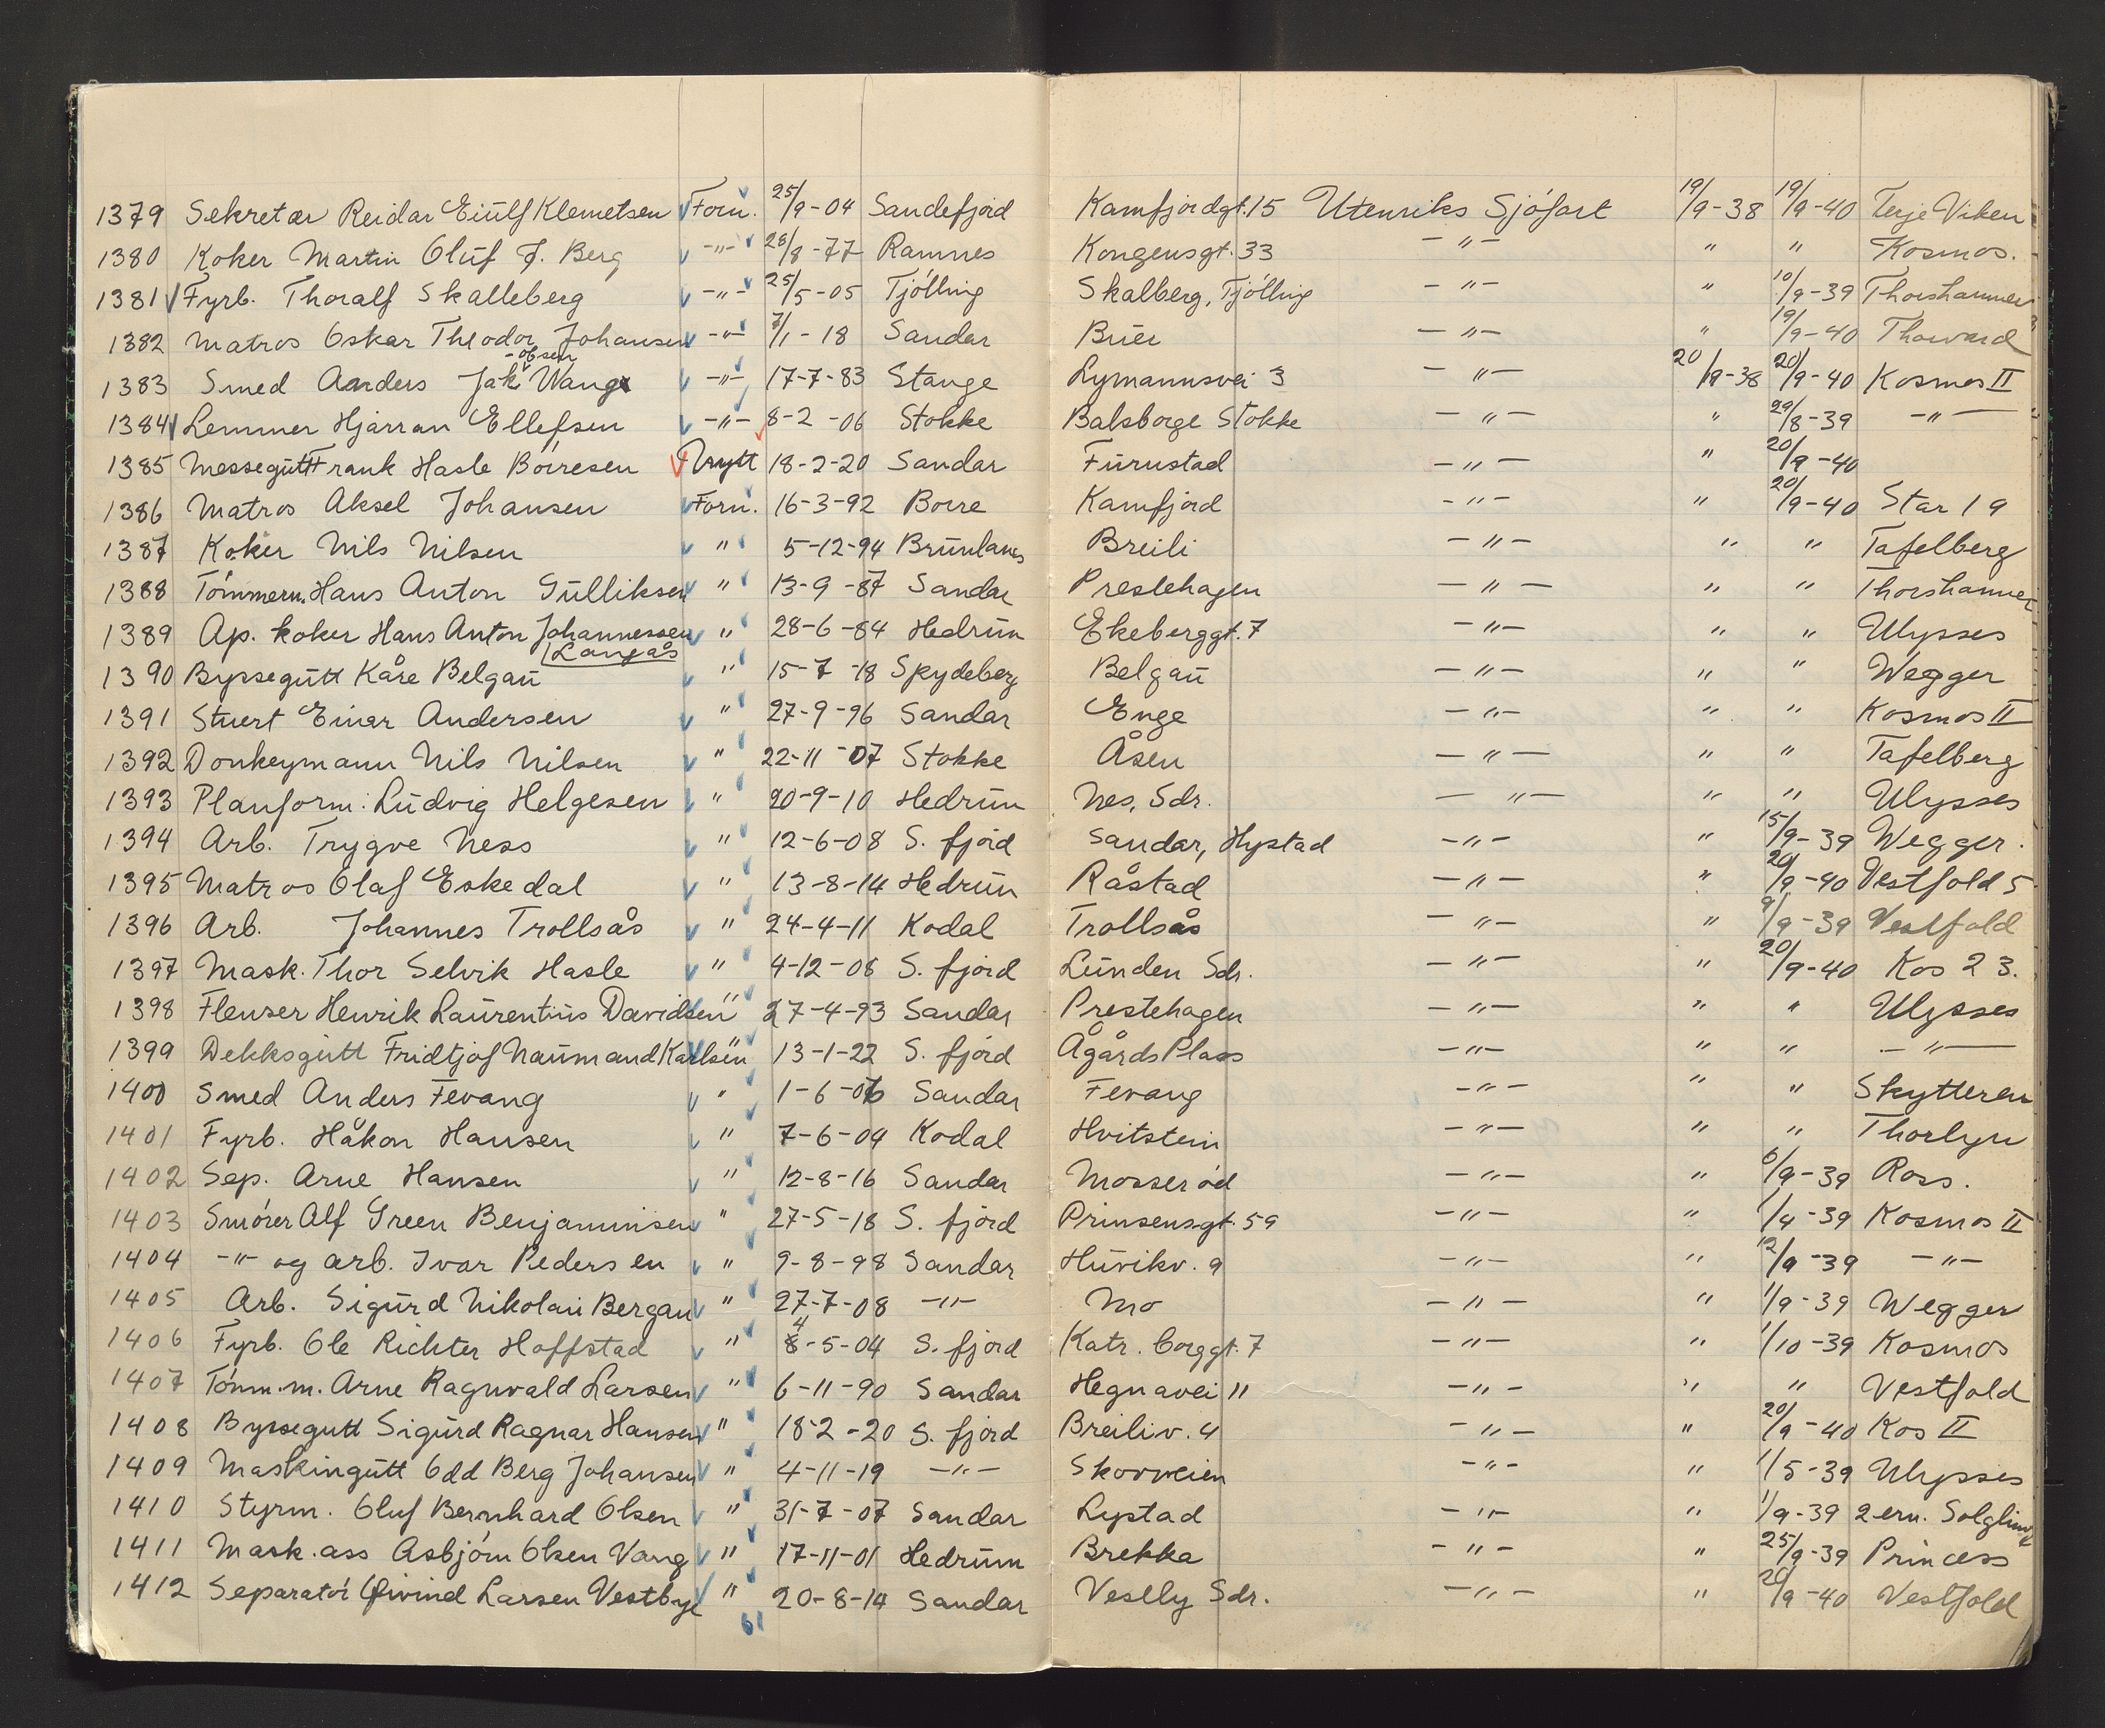 1379 Sekretær Reidar Eiulf Klemetsen Forn. 25/9-04 Sandefjord Kamfjordgt. 15 Utenriks Sjöfart 19/9-38 19/9-40 Terje Viken
1380 Koker Martin Oluf J. Berg -"- 28/8-77 Ramnes Kongensgt. 33 -"- " " Kosmos.
1381 Fyrb. Thoralf Skalleberg -"- 25/5-05 Tjölling Skalberg, Tjölling -"- " 10/9-39 Thorshammer
1382 Matros Oskar Theodor Johansen -"- 7/1-18 Sandar Buer -"- " 19/9-40 Thorvard
1383 Smed Aanders Jak -obsen Wang -"- 17-7-83 Stange Lymannsvei 3 -"- 20/9-38 20/9-40 Kosmos II
1384 Lemmer Hjarran Ellefsen -"- 8-2-06 Stokke Balsborge Stokke -"- " 29/8-39 -"-
1385 Messegutt Frank Hasle Börresen Nytt 18-2-20 Sandar Furustad -"- " 20/9-40
1386 Matros Aksel Johansen Forn. 16-3-92 Borre Kamfjord -"- " 20/9-40 Star 19
1387 Koker Nils Nilsen " 5-12-94 Brunlanes Breili -"- " " Tafelberg
1388 Tömmerm. Hans Anton Gulliksen " 13-9-87 Sandar Prestehagen -"- " " Thorshammer
1389 Ap. koker Hans Anton Johannessen " 28-6-84 Hedrum Ekeberggt. 7 -"- " " Ulysses
Langås
1390 Byssegutt Kåre Belgau " 15-7-18 Spydeberg Belgau -"- " " Wegger
1391 Stuert Einar Andersen " 27-9-96 Sandar Enge -"- " " Kosmos II
1392 Donkeymann Nils Nilsen " 22-11-07 Stokke Åsen -"- " " Tafelberg
1393 Planform: Ludvig Helgesen " 20-9-10 Hedrum Nes, Sdr. -"- " " Ulysses
1394 Arb. Trygve Ness " 12-6-08 S. fjord Sandar, Hystad -"- " 15/9-39 Wegger.
1395 Matros Olaf Eskedal " 13-8-14 Hedrum Råstad -"- " 20/9-40 Vestfold 5
1396 Arb. Johannes Trollsås " 24-4-11 Kodal Trollsås -"- " 9/9-39 Vestfold
1397 Mask. Thor Selvik Hasle " 4-12-08 S. fjord Lunden Sdr. -"- " 20/9-40 Kos 23.
1398 Flenser Henrik Laurentius Davidsen " 27-4-93 Sandar Prestehagen -"- " " Ulysses
1399 Dekksgutt Fridtjof Naumand Karlsen " 13-1-22 S. fjord Ågårds Plass -"- " " -"-
1400 Smed Anders Fevang " 1-6-06 Sandar Fevang -"- " " Skytteren
1401 Fyrb. Håkon Hansen " 7-6-09 Kodal Hvitstein -"- " " Thorlyn
1402 Sep. Arne Hansen " 12-8-16 Sandar Mosseröd -"- " 6/9-39 Ross.
1403 Smörer Alf Green Benjaminsen " 27-5-18 S. fjord Prinsensgt. 59 -"- " 1/4-39 Kosmos II
1404 -"- og arb. Ivar Pedersen " 9-8-98 Sandar Huvikv. 9 -"- " 12/9-39 -"-
1405 Arb. Sigurd Nikolai Bergan " 27-7-08 -"- Mo -"- " 1/9-39 Wegger
1406 Fyrb. Ole Richter Hoffstad " 4-5-04 S. fjord Katr. Borggt. 7 -"- " 1/10-39 Kosmos
1407 Tömm.m. Arne Ragnvald Larsen " 6-11-90 Sandar Hegnavei 11 -"- " " Vestfold
1408 Byssegutt Sigurd Ragnar Hansen " 18-2-20 S. fjord Breiliv. 4 -"- " 20/9-40 Kos II
1409 Maskingutt Odd Berg Johansen " 4-11-19 -"- Skovveien -"- " 1/5-39 Ulysses
1410 Styrm. Oluf Bernhard Olsen " 31-7-07 Sandar Lystad -"- " 1/9-39 2 ern. Solglimt
1411 Mask. ass Asbjörn Olsen Vang " 17-11-01 Hedrum Brekka -"- " 25/9-39 Princess
1412 Separatör Øivind Larsen Vestbye " 20-8-14 Sandar Veslly Sdr. -"- " 20/9-40 Vestfold